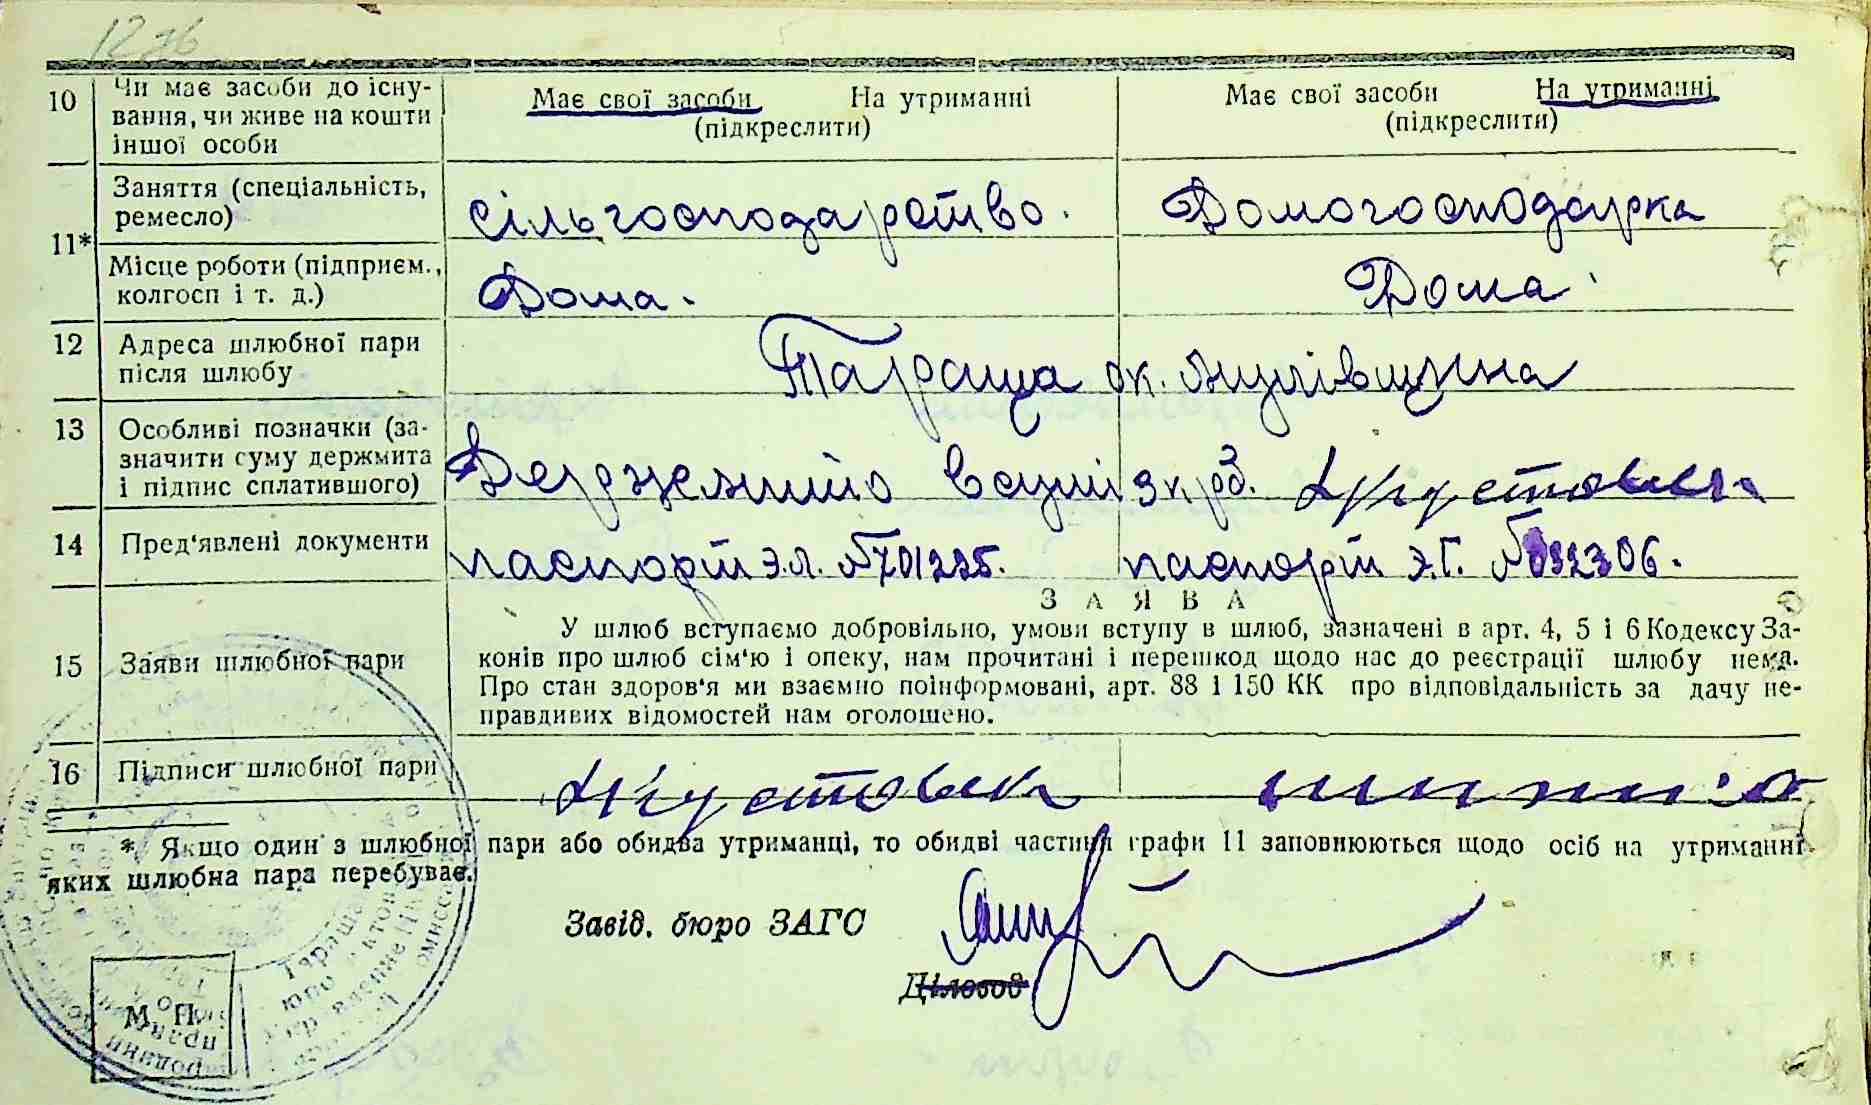 10 Чи має засоби до існу- Має свої засоби На утриманні Має свої засоби На утриманні
вання, чи живе на кошти (підкреслити) (підкреслити)
іншої особи
11* Заняття (спеціальність, сільгосподарство. Домогосподарка
ремесло)
Місце роботи (підприєм., Дома. Дома.
колгосп і т. д.)
12 Адреса шлюбної пари Тараща ок.
після шлюбу
13 Особливі позначки (за-
значити суму держмита Держмито 3 крб.
і підпис сплатившого)
14 Пред'явлені документи паспорт Э.Л. № 701225. паспорт Э.Г. № 032306.
З А Я В А
15 Заяви шлюбної пари У шлюб вступаємо добровільно, умови вступу в шлюб, зазначені в арт. 4, 5 і 6 Кодексу За-
конів про шлюб сім'ю і опеку, нам прочитані і перешкод щодо нас до реєстрації шлюбу нема.
Про стан здоров'я ми взаємно поінформовані, арт. 88 і 150 КК про відповідальність за дачу не-
правдивих відомостей нам оголошено.
16 Підписи шлюбної пари
* Якщо один з шлюбної пари або обидва утриманці, то обидві частини графи 11 заповнюються щодо осіб на утриманні
яких шлюбна пара перебуває.
Завід. бюро ЗАГС
Діловод
М. П.